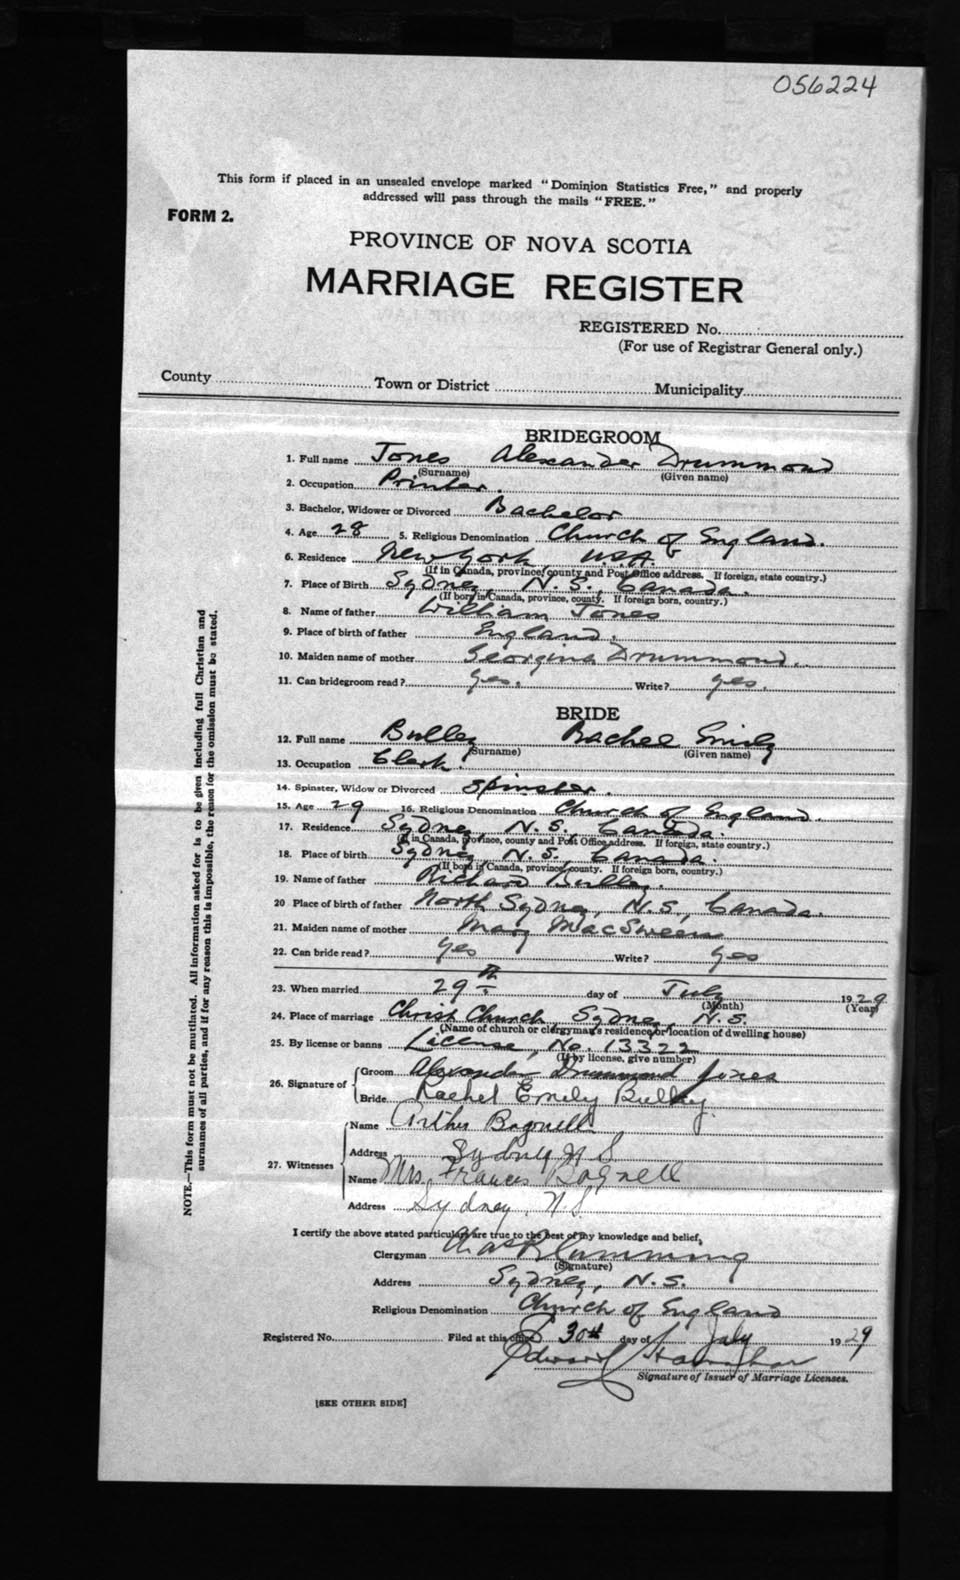 056224
This form if placed in an unsealed envelope marked "Dominion Statistics Free," and properly
addressed will pass through the mails "FREE."
FORM 2.
PROVINCE OF NOVA SCOTIA
MARRIAGE REGISTER
REGISTERED No.
(For use of Registrar General only.)
County Town or District Municipality
BRIDEGROOM
1. Full name Jones Alexander Drummond
(Surname) (Given name)
2. Occupation Printer.
3. Bachelor, Widower or Divorced Bachelor
4. Age 28 5. Religious Denomination Church of England.
6. Residence New York U.S.A.
(If in Canada, province, county and Post Office address. If foreign, state country.)
7. Place of Birth Sydney, N.S., Canada.
(If born in Canada, province, county. If foreign born, country.)
8. Name of father William Jones
9. Place of birth of father England.
10. Maiden name of mother Georgina Drummond.
11. Can bridegroom read? yes. Write? yes.
BRIDE
12. Full name Bulley Rachel Emily
(Surname) (Given name)
13. Occupation Clerk.
14. Spinster, Widow or Divorced Spinster.
15. Age 29 16. Religious Denomination Church of England.
17. Residence Sydney, N.S., Canada.
(If in Canada, province, county and Post Office address. If foreign, state country.)
18. Place of birth Sydney, N.S., Canada.
(If born in Canada, province, county. If foreign born, country.)
19. Name of father Richard Bulley.
20 Place of birth of father North Sydney, N.S., Canada.
21. Maiden name of mother Mary MacSween
22. Can bride read? yes Write? yes
23. When married 29th day of July 1929
(Month) (Year)
24. Place of marriage Christ Church, Sydney, N.S.
(Name of church or clergyman's residence, or location of dwelling house)
25. By license or banns License, No. 13322
(If by license, give number)
26. Signature of Groom Alexander Drummond Jones
Bride Rachel Emily Bulley.
27. Witnesses
Name Arthur Bagnell
Address Sydney N S
Name Mrs. Frances Bagnell
Address Sydney, N.S.
I certify the above stated particulars are true to the best of my knowledge and belief,
Clergyman Cumming
(Signature)
Address Sydney, N.S.
Religious Denomination Church of England
Registered No. Filed at this office 30th day of July 1929
Edward
Signature of Issuer of Marriage Licenses.
[SEE OTHER SIDE]
NOTE.—This form must not be mutilated. All information asked for is to be given including full Christian and
surnames of all parties, and if for any reason this is impossible, the reason for the omission must be stated.